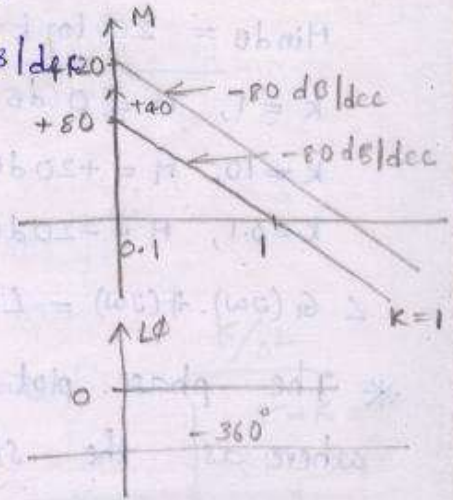 M
B/dec
+120
-80 dB/dec
+40
+80
-80 dB/dec
0.1
1
K=1
∠Φ
0
-360°